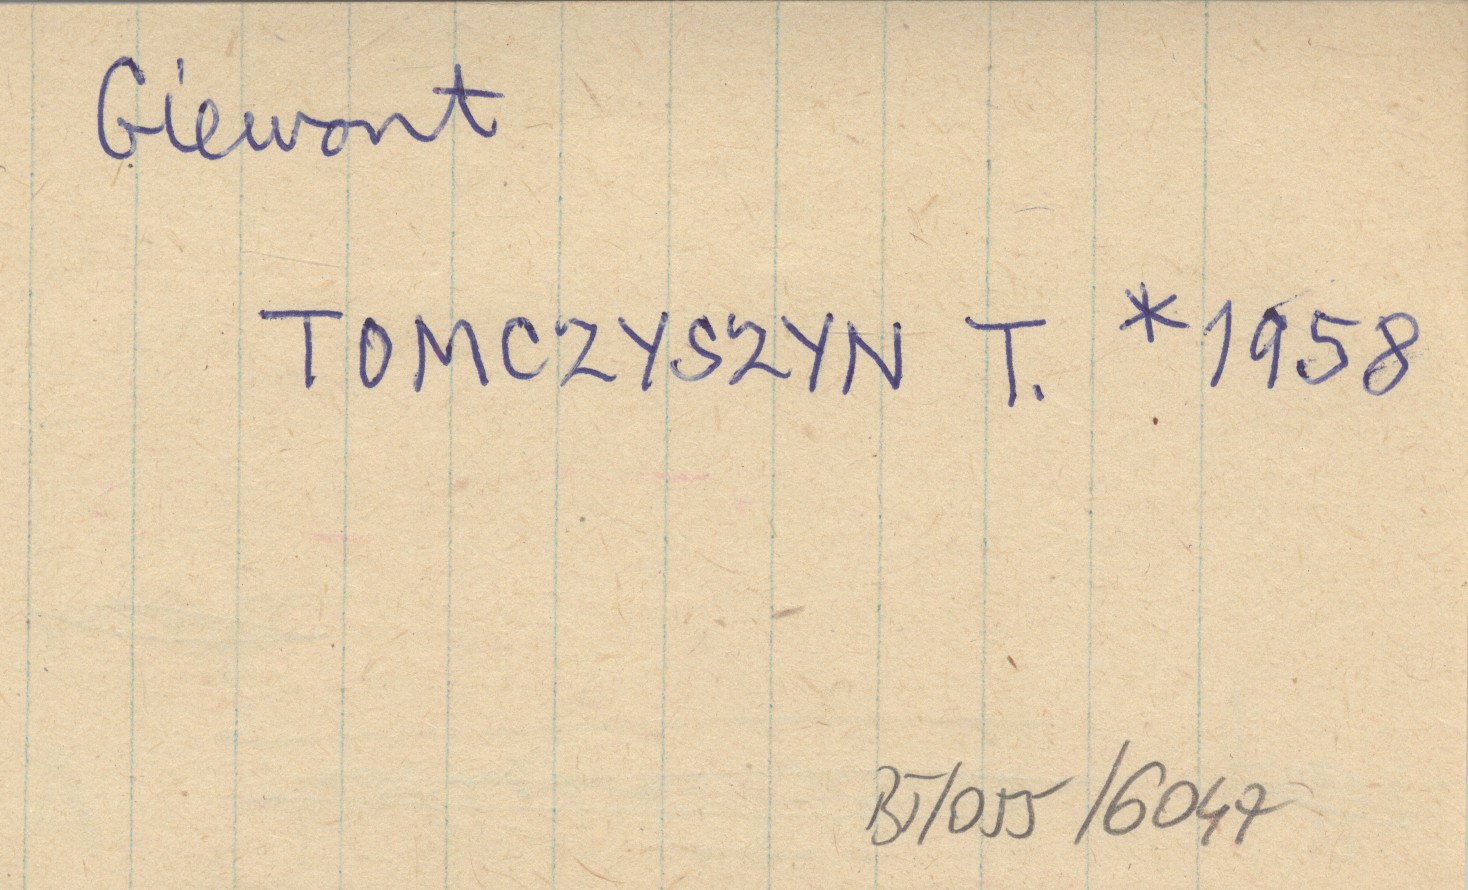 Giewont
TOMCZYSZYN T. *1958
BJ/055/6047